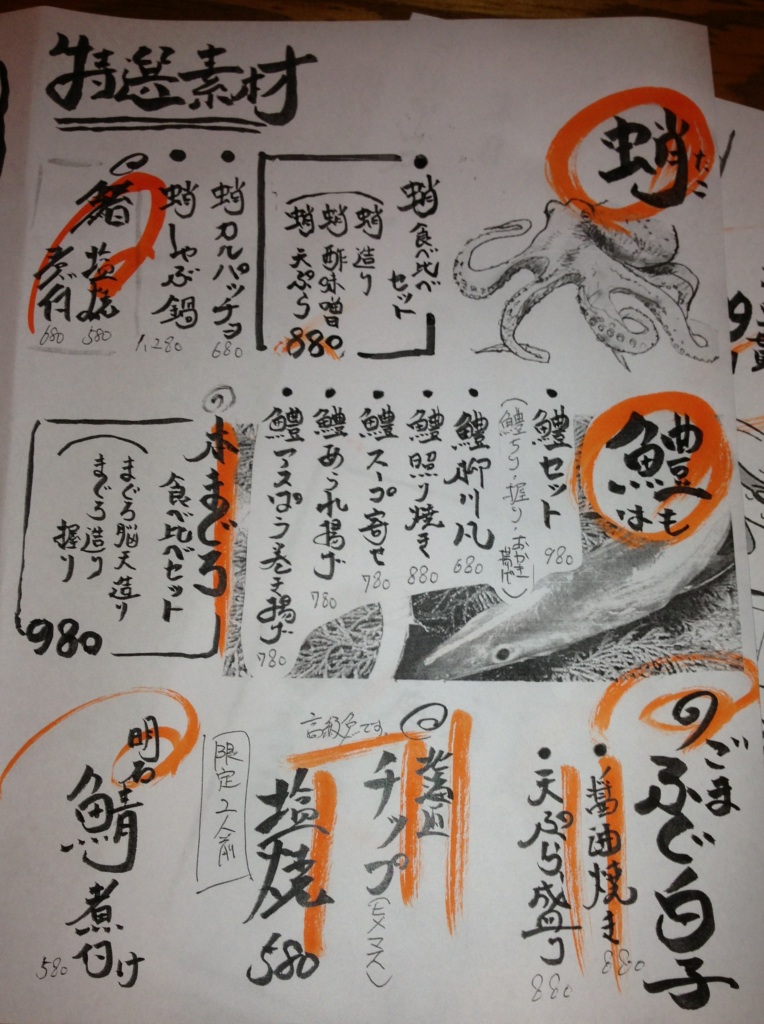 特選素材
蛸
たこ
・蛸食べ比べ
セット
蛸造り
蛸酢味噌
蛸天ぷら
880
・蛸カルパッチョ
680
・蛸しゃぶ鍋
1,280
塩焼
580
煮付
680
鱧
はも
・鱧セット
980
・鱧柳川風
680
・鱧照り焼き
880
・鱧スープ寄せ
780
・鱧あられ揚げ
780
・鱧アスパラ巻き揚げ
780
本まぐろ
食べ比べセット
まぐろ脳天造り
まぐろ造り
握り
980
ごま
ふぐ白子
・醤油焼き
880
・天ぷら盛り
880
北海道
チップ
(ヒメマス)
高級魚です。
塩焼
580
限定2人前
明石
鯖煮付け
580